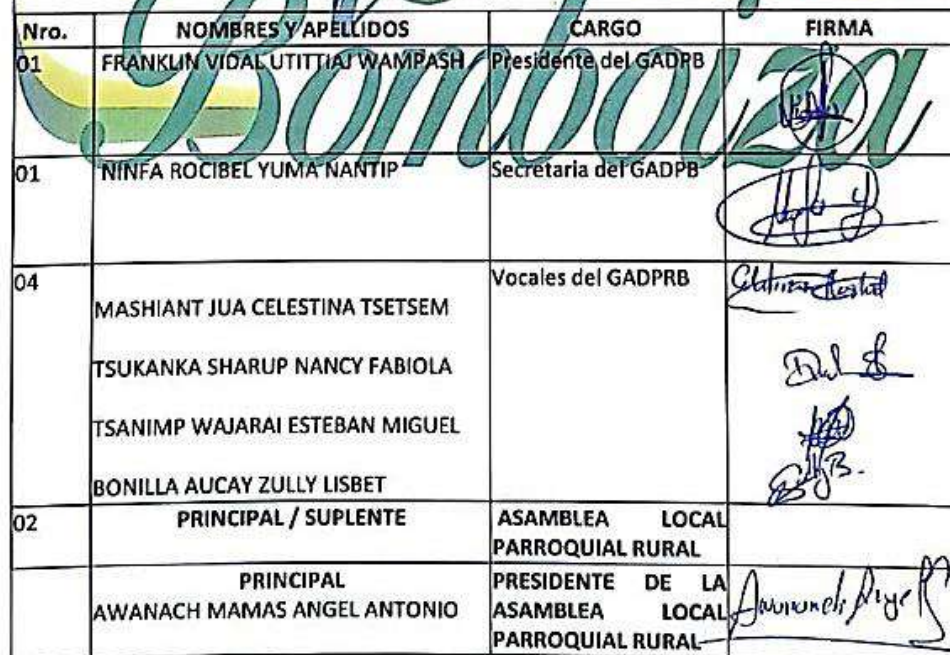 Bomboiza
Nro. NOMBRES Y APELLIDOS CARGO FIRMA
01 FRANKLIN VIDAL UTITTIAJ WAMPASH Presidente del GADPB
01 NINFA ROCIBEL YUMA NANTIP Secretaria del GADPB
04 Vocales del GADPRB
MASHIANT JUA CELESTINA TSETSEM
TSUKANKA SHARUP NANCY FABIOLA
TSANIMP WAJARAI ESTEBAN MIGUEL
BONILLA AUCAY ZULLY LISBET
02 PRINCIPAL / SUPLENTE ASAMBLEA LOCAL
PARROQUIAL RURAL
PRINCIPAL PRESIDENTE DE LA
AWANACH MAMAS ANGEL ANTONIO ASAMBLEA LOCAL
PARROQUIAL RURAL